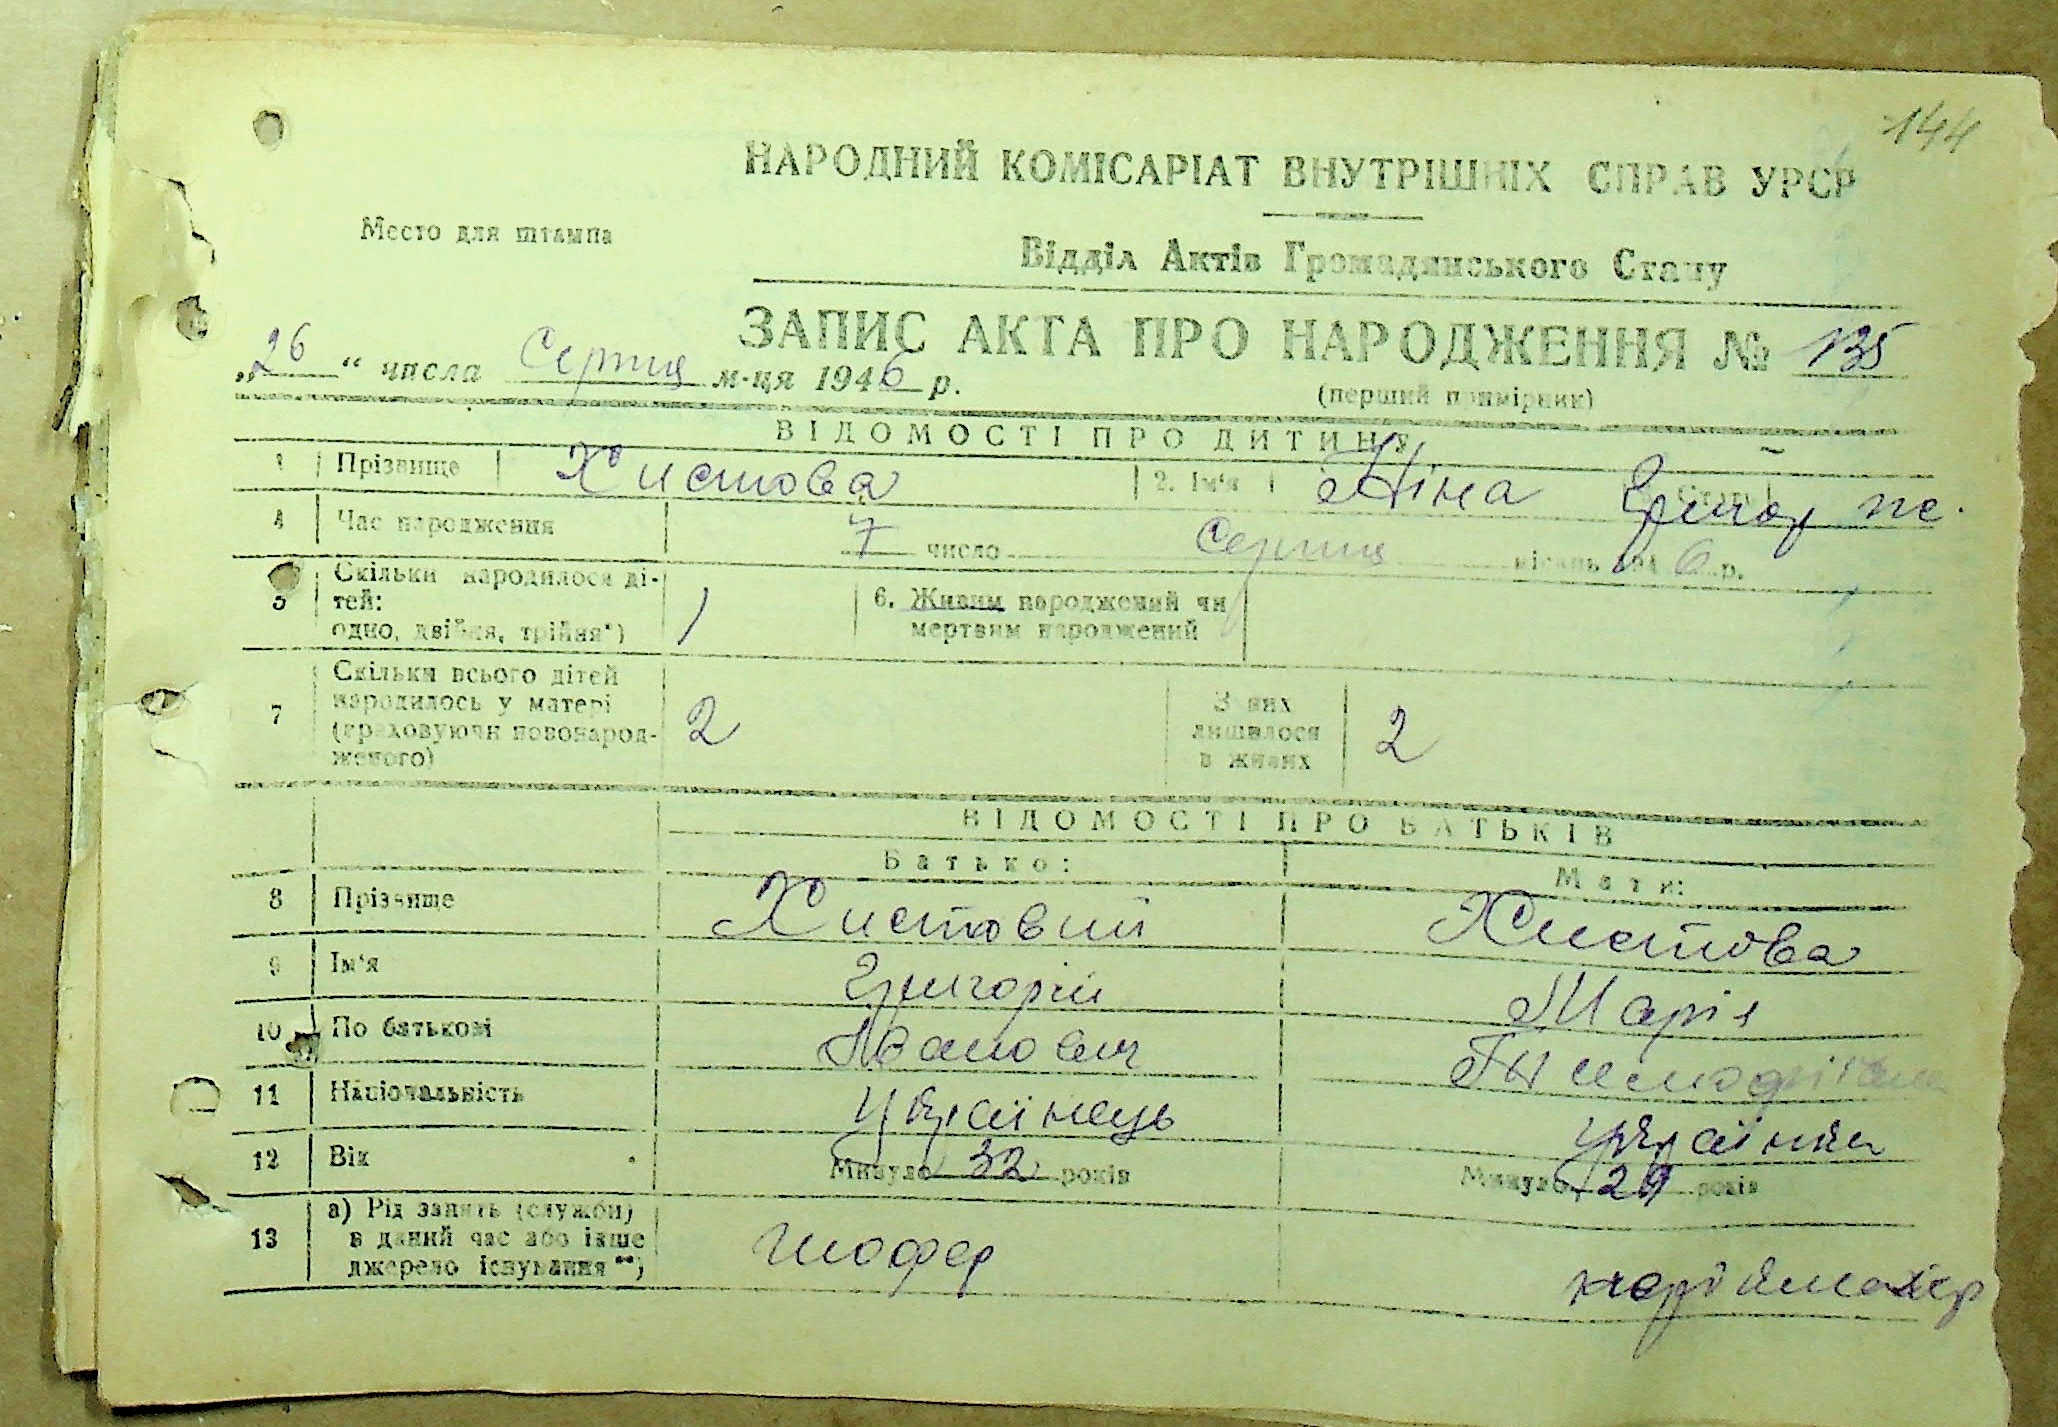 144
НАРОДНИЙ КОМІСАРІАТ ВНУТРІШНІХ СПРАВ УРСР
Место для штампа
Відділ Актів Громадянського Стану
ЗАПИС АКТА ПРО НАРОДЖЕННЯ № 135
„26“ числа Серпня м-ця 1946 р.
(перший примірник)
ВІДОМОСТІ ПРО ДИТИНУ
1 Прізвище Хистова 2. Ім'я Ніна Григор
4 Час народження 7 число Серпня місяць 1946 р.
5 Скільки народилося дітей: одно, двійня, трійня*) 1 6. Живим народжений чи мертвим народжений
7 Скільки всього дітей народилось у матері (враховуючи новонародженого) 2 З них лишилося в живих 2
ВІДОМОСТІ ПРО БАТЬКІВ
Батько: Мати:
8 Прізвище Хистовий Хистова
9 Ім'я Григорій Марія
10 По батькові Іванович
11 Національність українець українка
12 Вік Минуло 32 років Минуло 29 років
13 а) Рід занять (служби) в даний час або інше джерело існування**) шофер